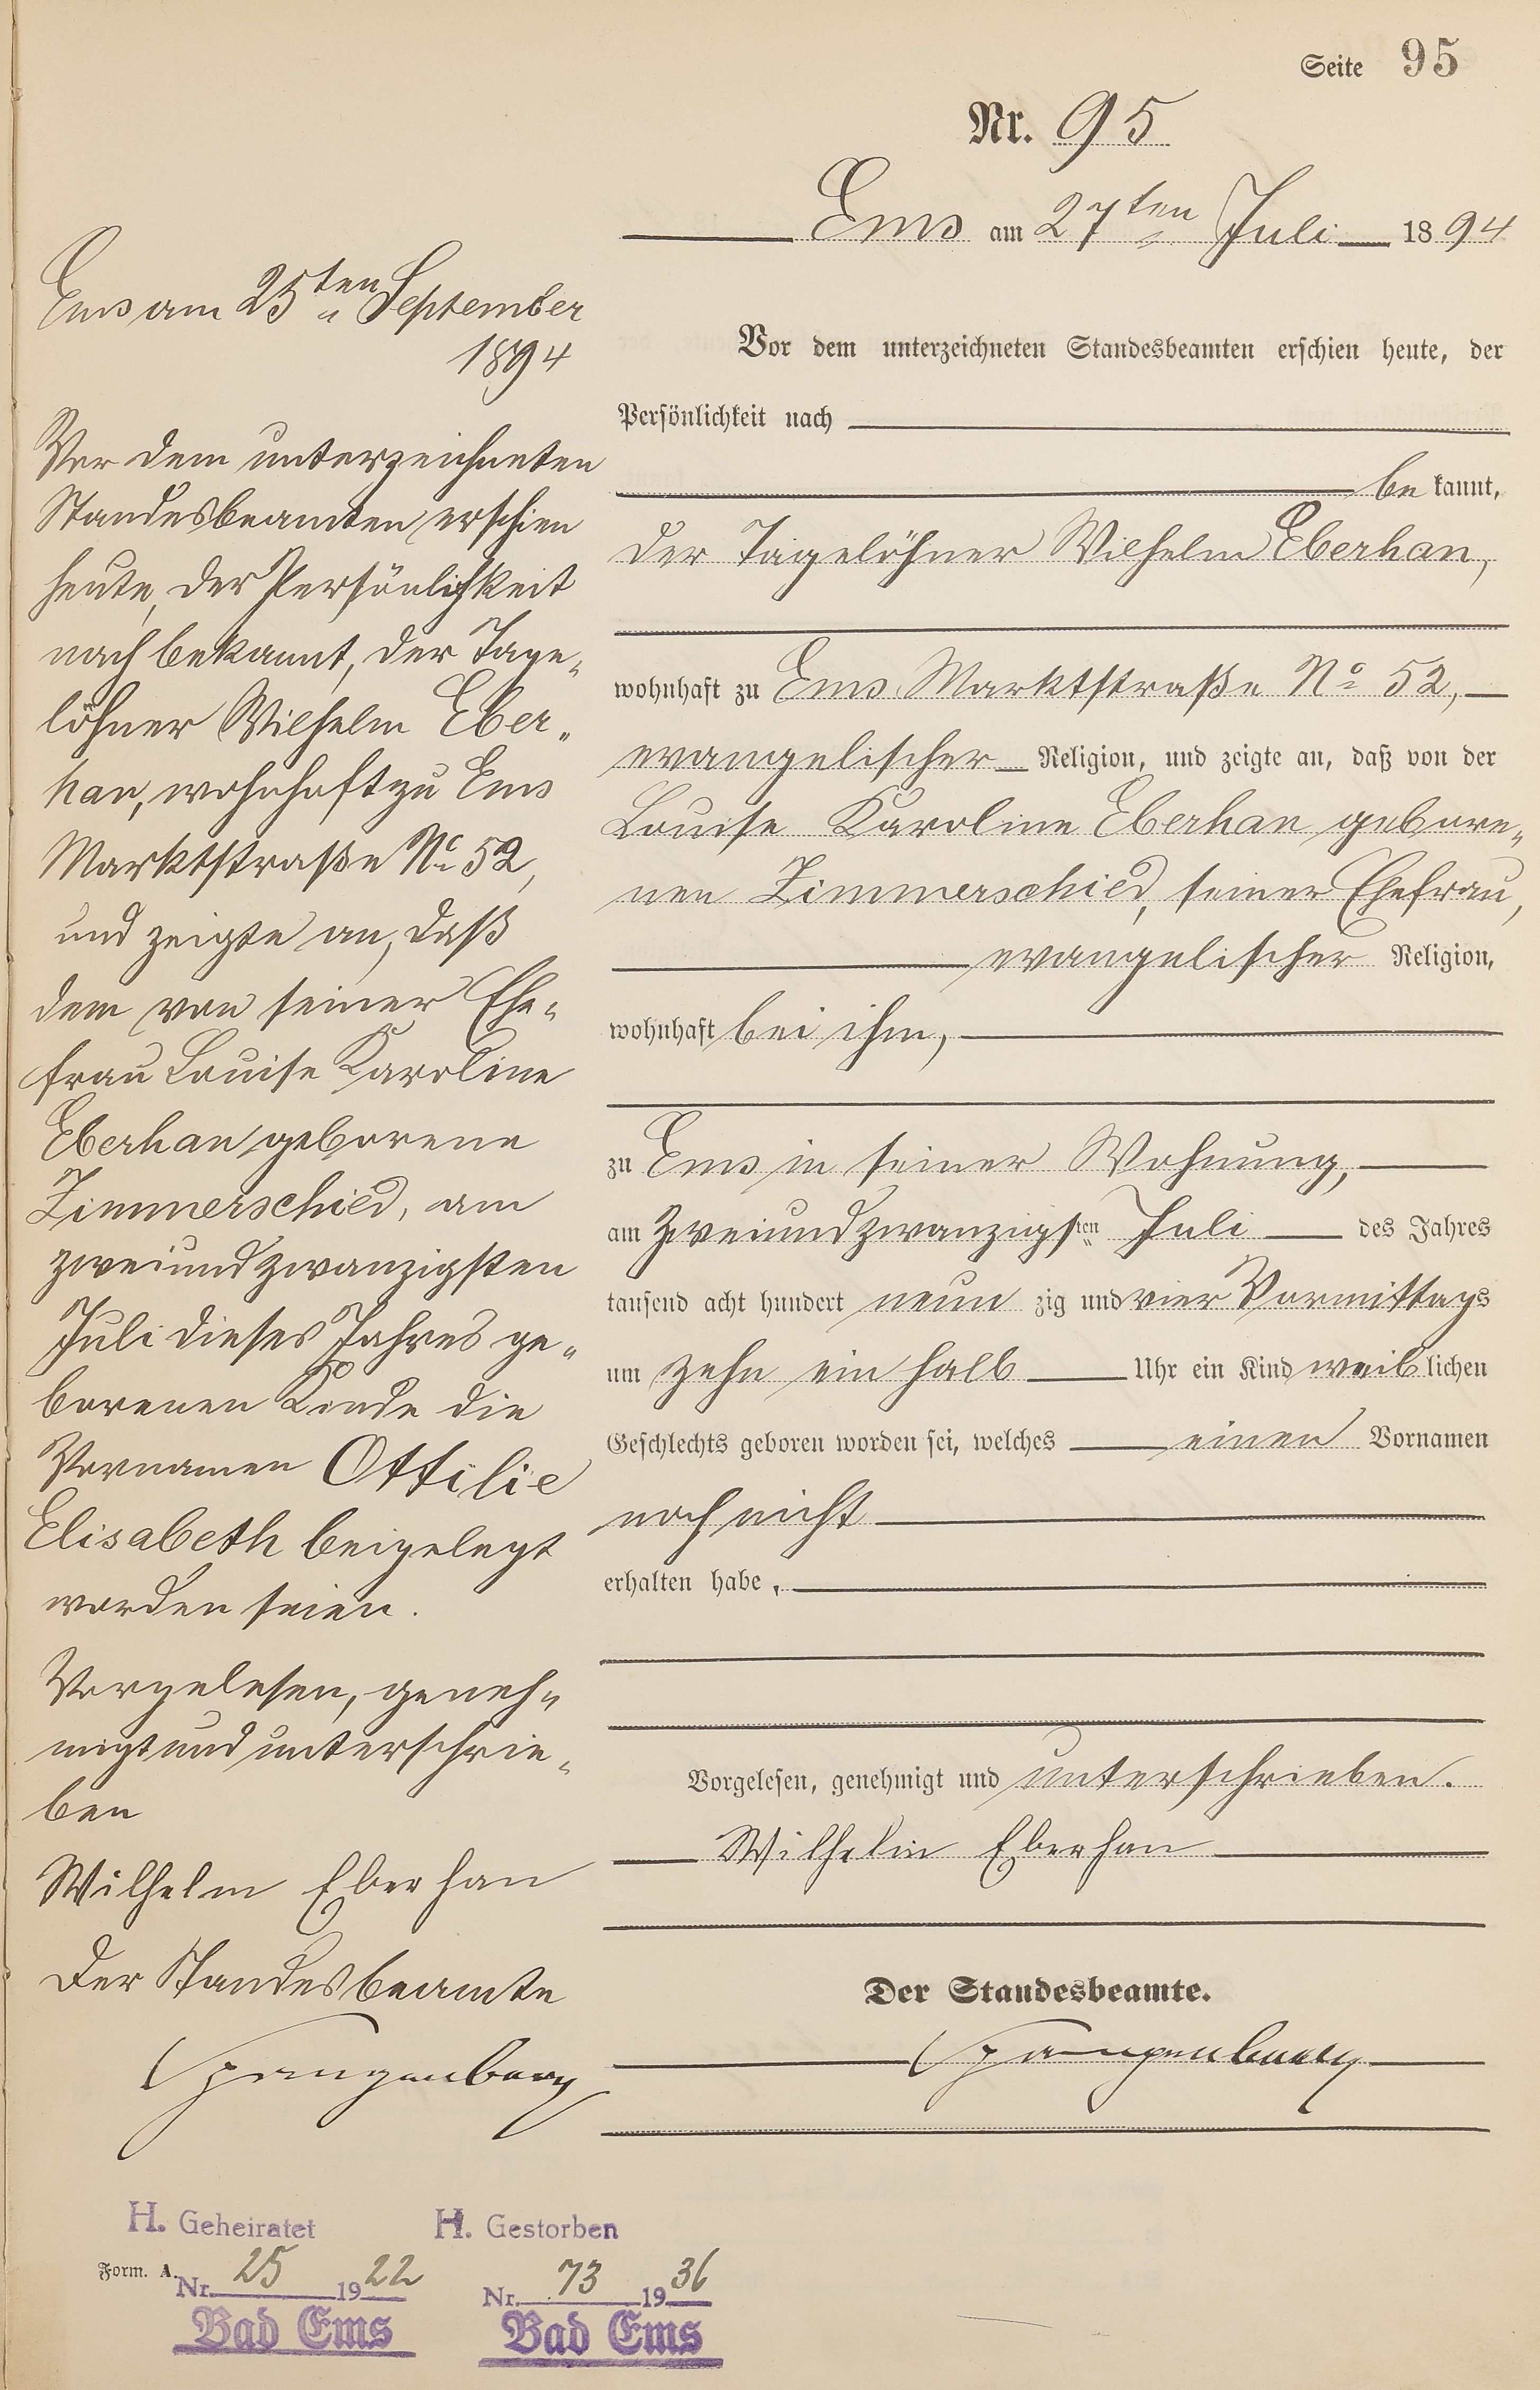 Seite 95
Nr. 95
Ems am 27ten Juli 1894
Vor dem unterzeichneten Standesbeamten erschien heute, der
Persönlichkeit nach
bekannt,
der Tagelöhner Wilhelm Eberhan,
wohnhaft zu Ems Marktstraße No 52,
evangelischer Religion, und zeigte an, daß von der
Louise Karoline Eberhan gebore„
nen Zimmerschied, seiner Ehefrau,
evangelischer Religion,
wohnhaft bei ihm,
zu Ems in seiner Wohnung,
am zweiundzwanzigsten Juli des Jahres
tausend acht hundert neunzig und vier Vormittags
um zehn ein halb Uhr ein Kind weiblichen
Geschlechts geboren worden sei, welches einen Vornamen
noch nicht
erhalten habe,
Vorgelesen, genehmigt und unterschrieben.
Wilhelm Eberhan
Der Standesbeamte.
Spangenberg
Ems am 25ten September
1894
Vor dem unterzeichneten
Standesbeamten erschien
heute, der Persönlichkeit
nach bekannt, der Tage„
löhner Wilhelm Eber„
han, wohnhaft zu Ems
Marktstraße No 52,
und zeigte an, daß
dem von seiner Ehe„
frau Louise Karoline
Eberhan geborene
Zimmerschied, am
zweiundzwanzigsten
Juli dieses Jahres ge„
borenen Kinde die
Vornamen Ottilie
Elisabeth beigelegt
worden seien.
Vorgelesen, geneh„
migt und unterschrie„
ben
Wilhelm Eberhan
Der Standesbeamte
Spangenberg
H. Geheiratet
Form. A.
Nr. 25 1922
Bad Ems
H. Gestorben
Nr. 73 1936
Bad Ems